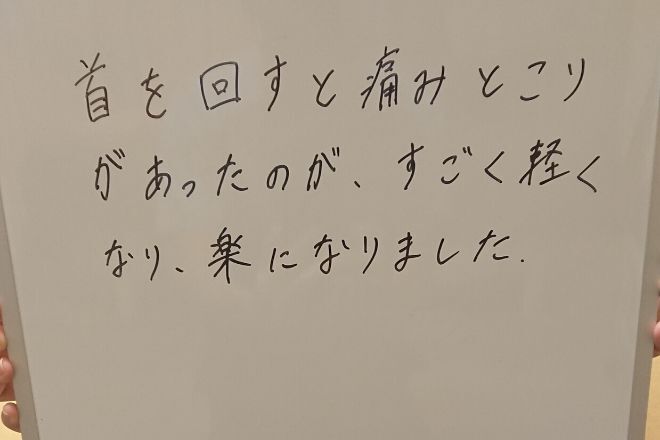 首を回すと痛みとこり
があったのが、すごく軽く
なり、楽になりました.